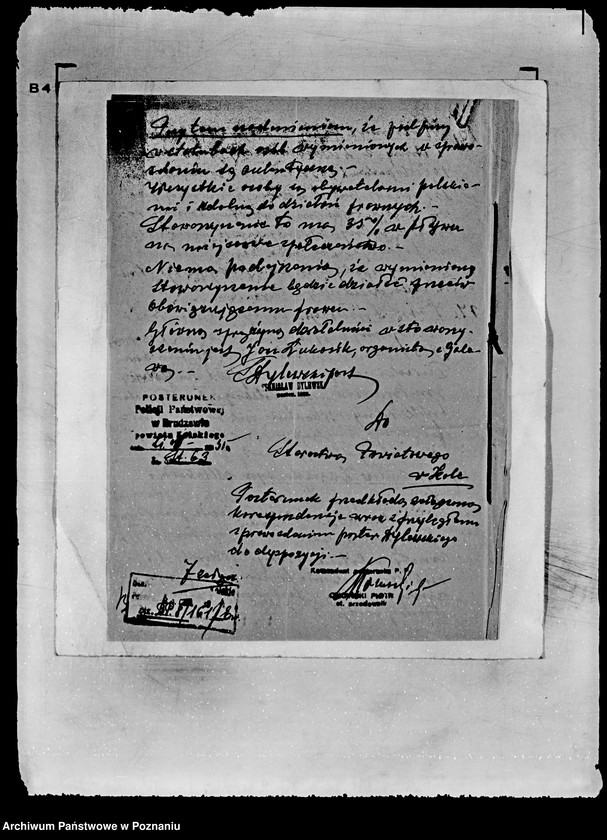 B4
Przytem nadmieniam, że podpisy
osób wymienionych w sprawo-
są autentyczne.-
Wszystkie osoby są obywatelami polskie-
mi i zdolną do działań prawnych.-
Stowarzyszenie to ma 35% wpływu
na miejscowe społeczeństwo.-
Niema podejrzenia, że wymienione
Stowarzyszenie będzie działać przeciw
obowiązującemu prawu.-
Główną sprężyną działalności w stowarzy-
szeniu jest Jan organista z
Dylewski post
STANISŁAW DYLEWSKI
POSTERUNEK
Policji Państwowej
w Brudzewie
powiatu Kolskiego
Do
Starostwa Powiatowego
w Kole
Posterunek przedkłada załączoną
korespondencję wraz z
sprawozdaniem poster. Dylewskiego
do dyspozycji.-
7
Komendant posterunku P. P.
PIOTR
st. przodownik
Archiwum Państwowe w Poznaniu